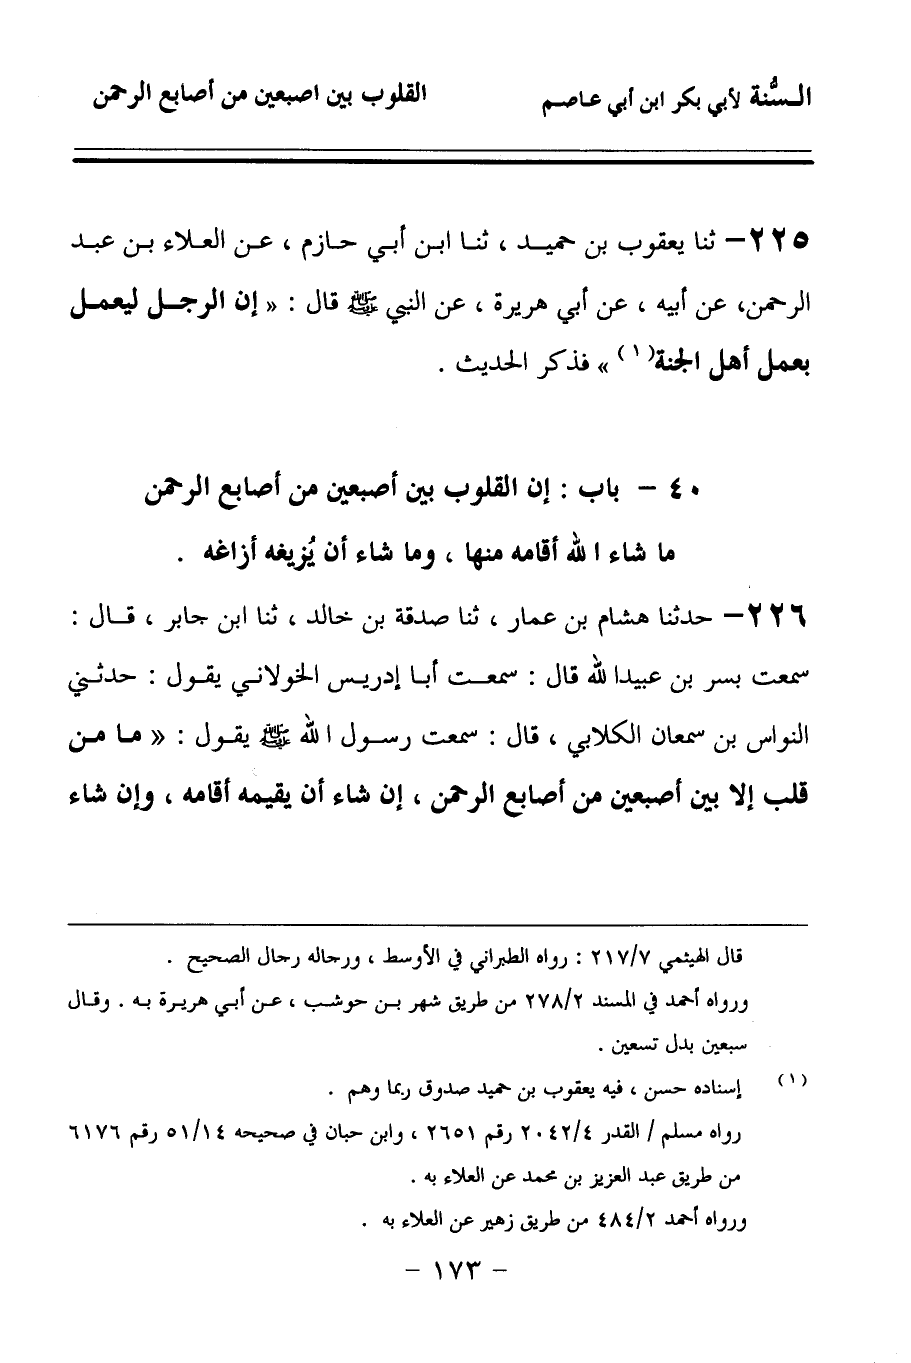 السُّنة لأبي بكر ابن أبي عاصم القلوب بين اصبعين من أصابع الرحمن
٢٢٥– ثنا يعقوب بن حميد ، ثنا ابن أبي حازم ، عن العلاء بن عبد
الرحمن، عن أبيه ، عن أبي هريرة ، عن النبي ﷺ قال : « إن الرجل ليعمل
بعمل أهل الجنة(١) » فذكر الحديث .
٤٠ – باب : إن القلوب بين أصبعين من أصابع الرحمن
ما شاء الله أقامه منها ، وما شاء أن يُزيغه أزاغه .
٢٢٦– حدثنا هشام بن عمار ، ثنا صدقة بن خالد ، ثنا ابن جابر ، قال :
سمعت بسر بن عبيدالله قال : سمعت أبا إدريس الخولاني يقول : حدثني
النواس بن سمعان الكلابي ، قال : سمعت رسول الله ﷺ يقول : « ما من
قلب إلا بين أصبعين من أصابع الرحمن ، إن شاء أن يقيمه أقامه ، وإن شاء
قال الهيثمي ٢١٧/٧ : رواه الطبراني في الأوسط ، ورحاله رحال الصحيح .
ورواه أحمد في المسند ٢٧٨/٢ من طريق شهر بن حوشب ، عن أبي هريرة به . وقال
سبعين بدل تسعين .
(١) إسناده حسن ، فيه يعقوب بن حميد صدوق ربما وهم .
رواه مسلم / القدر ٢٠٤٢/٤ رقم ٢٦٥١ ، وابن حبان في صحيحه ٥١/١٤ رقم ٦١٧٦
من طريق عبد العزيز بن محمد عن العلاء به .
ورواه أحمد ٤٨٤/٢ من طريق زهير عن العلاء به .
– ١٧٣ –